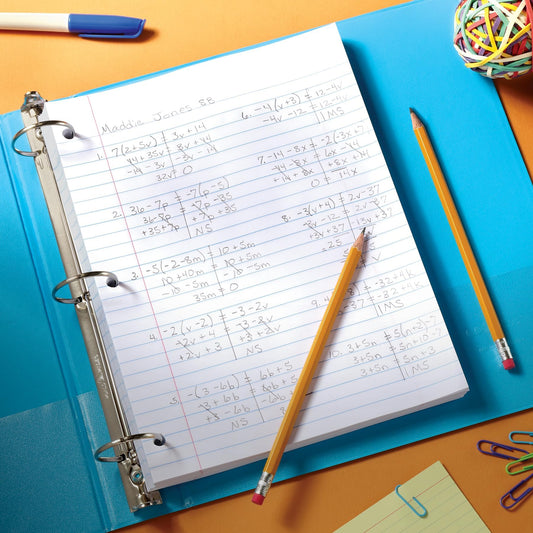 Maddie Jones 8B
1. 7(2+5v) = 3v + 14
14 + 35v = 3v + 14
-14 - 3v = -3v - 14
32v = 0
2. 36 - 7p = -7(p - 5)
36 - 7p = -7p - 35
+35 + 7p + 7p + 35
NS
3. -5(-2 - 8m) = 10 + 5m
10 + 40m = 10 + 5m
-10 - 5m = -10 - 5m
35m = 0
4. -2(v - 2) = -3 - 2v
-2v + 4 = -3 - 2v
+2v + 3 + 3 + 2v
NS
5. -(3 - 6b) = 6b + 5
-3 + 6b = 6b + 5
+3 - 6b -6b
NS 8
6. -4(v+3) = 12 - 4v
-4v - 12 = 12 - 4v
1MS
7. -14 - 8x = -2(3x + 7
-14 - 8x = 6x - 14
+14 + 8x +8x + 14
0 = 14x
8. -3(v+4) = 2v - 37
-3v - 12 = 2v - 37
+3v + 37 +3v + 37
-25
5
v
9. 4 -32 + 4k
-32 + 4k
MS
10. 3 + 5n = 5(n+2) - 7
3 + 5n = 5n + 10 - 7
3 + 5n = 5n + 3
1MS